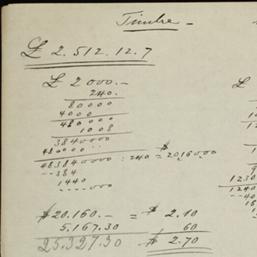 Timbre -
£ 2.512.12.7
£ 2000.-
240.
80000
4000
480000
1008
3840000
480000
48384.0000 : 240 = 2016000
--384
1440
$20.160.- = $ 2.10
5.167.30 60
25.327.30 - $ 2.70